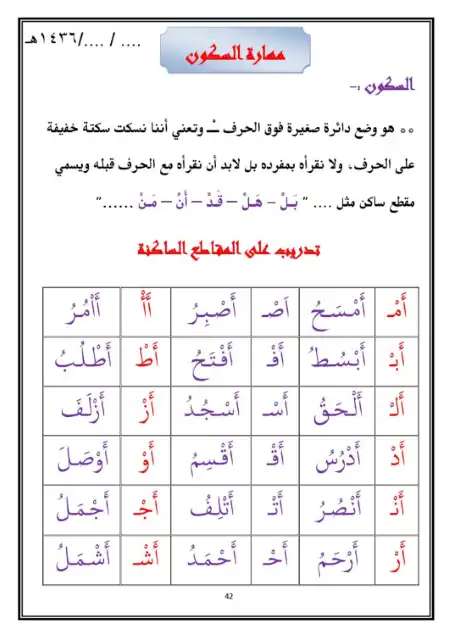 .... / ..../١٤٣٦هـ
مهارة السكون
السكون :-
** هو وضع دائرة صغيرة فوق الحرف ـْـ وتعني أننا نسكت سكتة خفيفة
على الحرف، ولا نقرأه بمفرده بل لابد أن نقرأه مع الحرف قبله ويسمي
مقطع ساكن مثل .... " بَـلْ – هَـلْ – قَـدْ – أَنْ – مَـنْ ......"
تدريب على المقاطع الساكنة
أَمْـ أَمْسَحُ أَصْـ أَصْبِرُ أَأْ أَأْمُرُ
أَبْـ أَبْسُطُ أَفْـ أَفْتَحُ أَطْ أَطْلُبُ
أَلْـ أَلْحَقُ أَسْـ أَسْجُدُ أَزْ أَزْلَفَ
أَدْ أَدْرُسُ أَقْـ أَقْسِمُ أَوْ أَوْصَلَ
أَنْـ أَنْصُرُ أَتْـ أَتْلِفُ أَجْـ أَجْمَلُ
أَرْ أَرْحَمُ أَحْـ أَحْمَدُ أَشْـ أَشْمَلُ
42